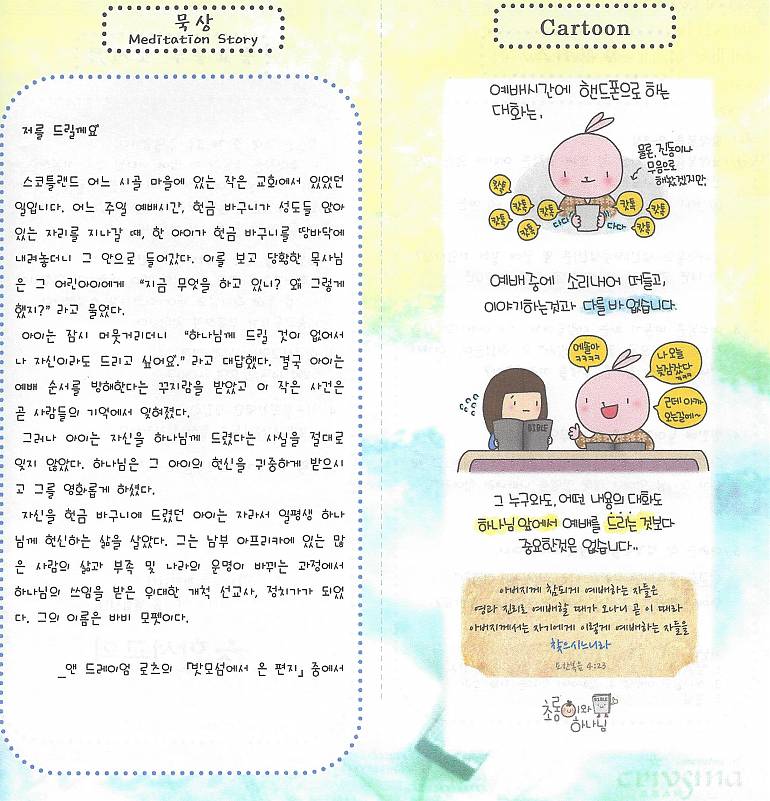 묵상
Meditation Story
저를 드릴께요
스코틀랜드 어느 시골 마을에 있는 작은 교회에서 있었던
일입니다. 어느 주일 예배시간, 헌금 바구니가 성도들 앉아
있는 자리를 지나갈 때, 한 아이가 헌금 바구니를 땅바닥에
내려놓더니 그 안으로 들어갔다. 이를 보고 당황한 목사님
은 그 어린아이에게 “지금 무엇을 하고 있니? 왜 그렇게
했지?” 라고 물었다.
아이는 잠시 머뭇거리더니 “하나님께 드릴 것이 없어서
나 자신이라도 드리고 싶어요.” 라고 대답했다. 결국 아이는
예배 순서를 방해한다는 꾸지람을 받았고 이 작은 사건은
곧 사람들의 기억에서 잊혀졌다.
그러나 아이는 자신을 하나님께 드렸다는 사실을 절대로
잊지 않았다. 하나님은 그 아이의 헌신을 귀중하게 받으시
고 그를 영화롭게 하셨다.
자신을 헌금 바구니에 드렸던 아이는 자라서 일평생 하나
님께 헌신하는 삶을 살았다. 그는 남부 아프리카에 있는 많
은 사람의 삶과 부족 및 나라의 운명이 바뀌는 과정에서
하나님의 쓰임을 받은 위대한 개척 선교사, 정치가가 되었
다. 그의 이름은 바비 모펫이다.
_앤 드레이엄 로츠의 「밧모섬에서 온 편지」 중에서
Cartoon
예배시간에 핸드폰으로 하는
대화는,
물론, 진동이나
무음으로
해놨겠지만,
캇톡
캇톡
캇톡
캇톡
캇톡
캇톡
캇톡
캇톡
다다
다다
예배중에 소리내어 떠들고,
이야기하는것과 다를 바 없습니다.
에돌아
ㅋㅋㅋㅋ
나 오늘
늦잠잤다
ㅋㅋㅋ
근데 아까
오는길에~
BIBLE
그 누구와도, 어떤 내용의 대화도
하나님 앞에서 예배를 드리는 것보다
중요한것은 없습니다..
아버지께 참되게 예배하는 자들은
영과 진리로 예배할 때가 오나니 곧 이 때라
아버지께서는 자기에게 이렇게 예배하는 자들을
찾으시느니라
요한복음 4:23
BIBLE
초롱이와
하나님